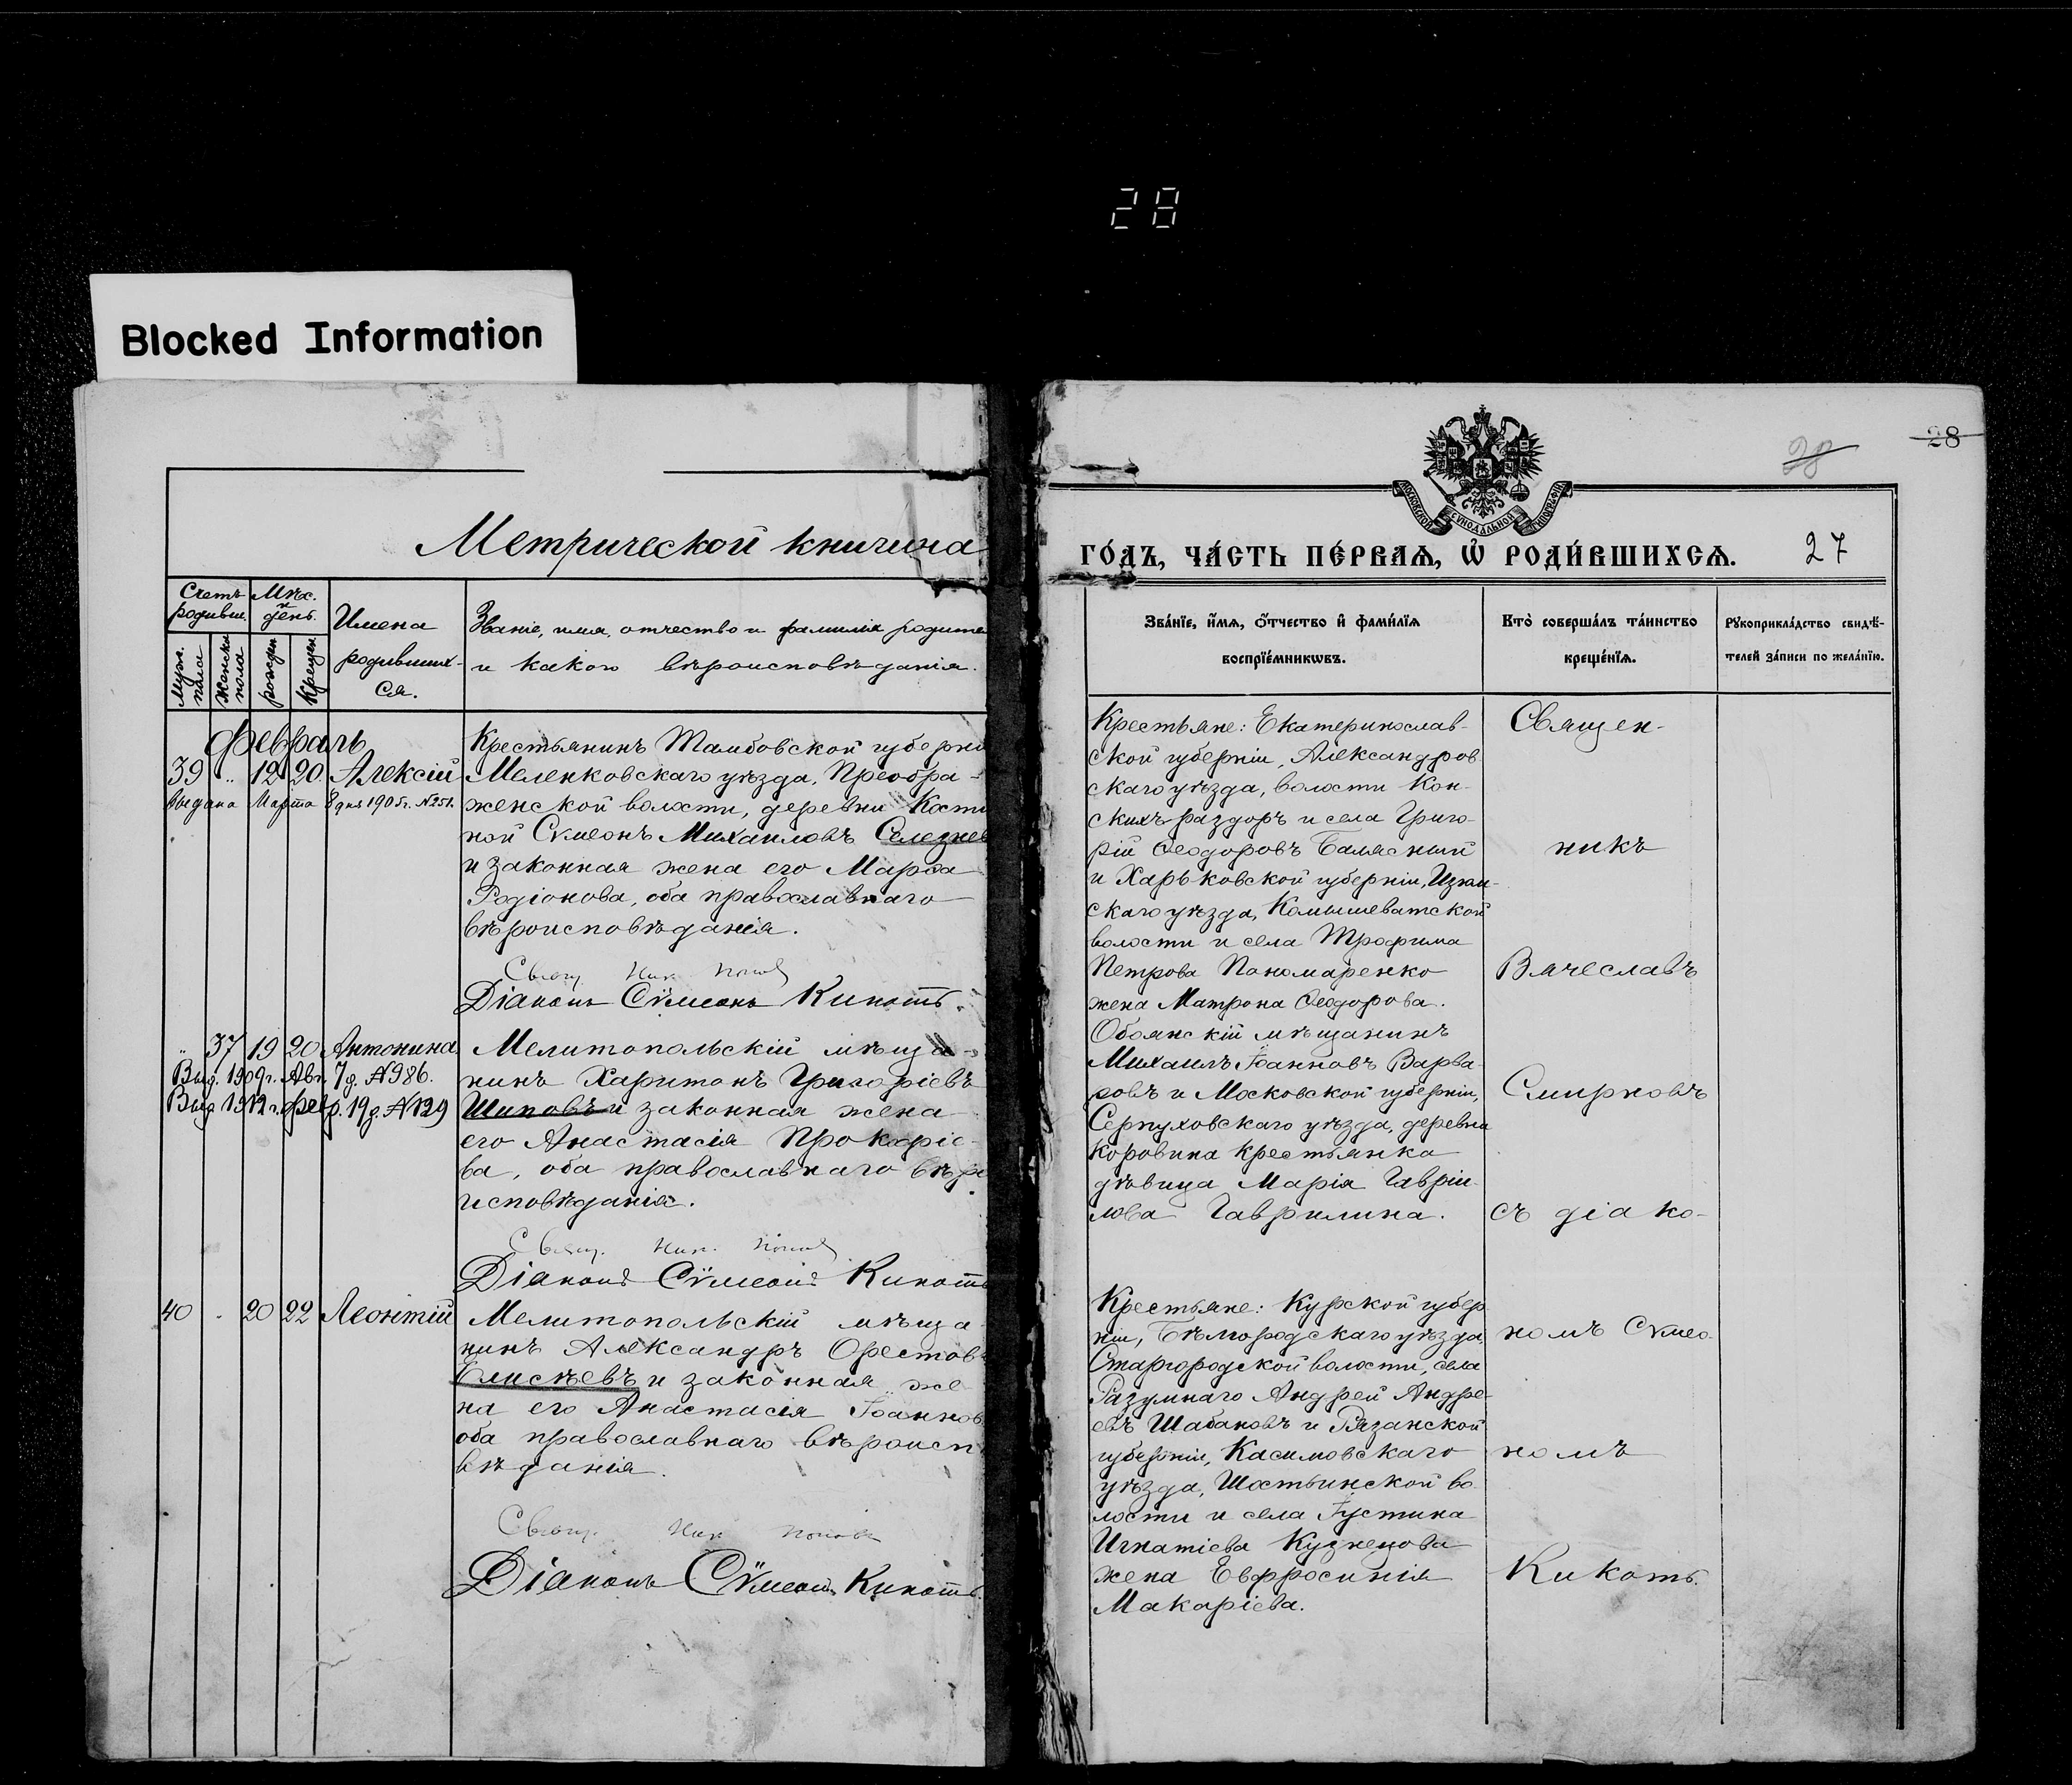 28
Blocked Information
Метрической книги на
Счетъ родивш.
Мѣс. и день.
Имена родившихся.
Званіе, имя, отчество и фамилія родите
и какого вѣроисповѣданія.
муж. пола
женска пола
рожден
крещен
Февраль
39 " 12 20 Алексій
Выдана Марта 8 дня 1905 г. №251.
Крестьянинъ Тамбовской губерні
Меленковскаго уѣзда, Преобра-
женской волости, деревни Кости
ной Сѵмеонъ Михаиловъ Селезнев
и законная жена его Марѳа
Родіонова, оба православнаго
вѣроисповѣданія.
Свящ. Ник. Попов
Діаконъ Сѵмеонъ Кикоть.
" 37 19 20 Антонина
Выд. 1909 г. Авг. 7 д. №986.
Выд. 1912 г. Февр. 19 д. №129
Мелитопольскій мѣща-
нинъ Харитонъ Григоріевъ
Шиповъ и законная жена
его Анастасія Прокопіе-
ва, оба православнаго вѣро
исповѣданія.
Свящ. Ник. Попов
Діаконъ Сѵмеонъ Кикоть
40 " 20 22 Леонтій
Мелитопольскій мѣща
нинъ Александръ Орестовъ
Елисѣевъ и законная же-
на его Анастасія Іоаннов
оба православнаго вѣроисп
вѣданія.
Свящ. Ник. Попов
Діаконъ Сѵмеонъ Кикоть.
28
28
МОСКОВСКОЙ СИНОДАЛЬНОЙ ТИПОГРАФІИ
ГО́ДЪ, ЧА́СТЬ ПЕ́РВАѦ, Ѡ҆ РОДИ́ВШИХСѦ.
27
Зва́нїе, и҆́мѧ, ѻ҆́тчество и҆ фами́лїѧ
воспрїе́мникѡвъ.
Кто̀ соверша́лъ та́инство
креще́нїѧ.
Рꙋкоприкла́дство свидѣ́-
телей за́писи по жела́нїю.
Крестьяне: Екатеринослав-
ской губерніи, Александров
скаго уѣзда, волости Кон-
скихъ-раздоръ и села Григо-
рій Ѳеодоровъ Балясный
и Харьковской губерніи, Изюм-
скаго уѣзда, Камышеватской
волости и села Трофима
Петрова Пономаренко
жена Матрона Ѳеодорова.
Обоянскій мѣщанинъ
Михаилъ Іоанновъ Варва-
ровъ и Московской губерніи,
Серпуховскаго уѣзда, деревни
Коровина крестьянка
дѣвица Марія Гавріи-
лова Гаврилина.
Крестьяне: Курской губер
ніи, Бѣлгородскаго уѣзда,
Старгородской волости, села
Разумнаго Андрей Андре-
евъ Шабановъ и Рязанской
губерніи, Касимовскаго
уѣзда, Шостьинской во
лости и села Іустина
Игнатіева Кузнецова
жена Евфросинія
Макаріева.
Священ-
никъ
Вячеславъ
Смирновъ
съ діако-
номъ Сѵмео-
номъ
Кикоть.